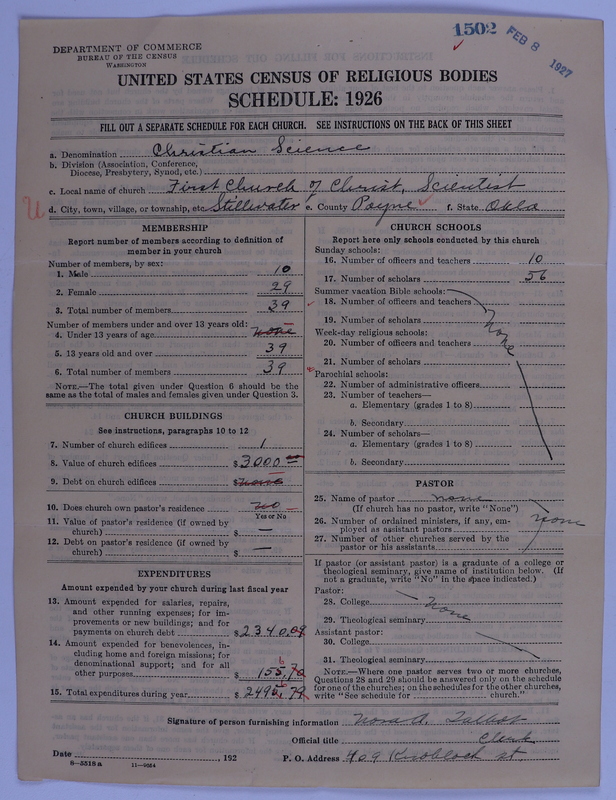 1502 FEB 8 1927
DEPARTMENT OF COMMERCE
BUREAU OF THE CENSUS
WASHINGTON
UNITED STATES CENSUS OF RELIGIOUS BODIES
SCHEDULE: 1926
FILL OUT A SEPARATE SCHEDULE FOR EACH CHURCH. SEE INSTRUCTIONS ON THE BACK OF THIS SHEET
a. Denomination Christian Science
b. Division (Association, Conference,
Diocese, Presbytery, Synod, etc.)
c. Local name of church First Church of Christ, Scientist
U d. City, town, village, or township, etc. Stillwater e. County Payne f. State Okla
MEMBERSHIP
Report number of members according to definition of
member in your church
Number of members, by sex:
1. Male 10
2. Female 29
3. Total number of members 39
Number of members under and over 13 years old:
4. Under 13 years of age none
5. 13 years old and over 39
6. Total number of members 39
NOTE.—The total given under Question 6 should be the
same as the total of males and females given under Question 3.
CHURCH BUILDINGS
See instructions, paragraphs 10 to 12
7. Number of church edifices 1
8. Value of church edifices $3000
9. Debt on church edifices $none
10. Does church own pastor's residence no
Yes or No
11. Value of pastor's residence (if owned by
church) $ —
12. Debt on pastor's residence (if owned by
church) $ —
EXPENDITURES
Amount expended by your church during last fiscal year
13. Amount expended for salaries, repairs,
and other running expenses; for im-
provements or new buildings; and for
payments on church debt $2340.09
14. Amount expended for benevolences, in-
cluding home and foreign missions; for
denominational support; and for all
other purposes $155.70
15. Total expenditures during year $2495.79
CHURCH SCHOOLS
Report here only schools conducted by this church
Sunday schools:
16. Number of officers and teachers 10
17. Number of scholars 56
Summer vacation Bible schools:
18. Number of officers and teachers
19. Number of scholars none
Week-day religious schools:
20. Number of officers and teachers
21. Number of scholars
Parochial schools:
22. Number of administrative officers
23. Number of teachers—
a. Elementary (grades 1 to 8)
b. Secondary
24. Number of scholars—
a. Elementary (grades 1 to 8)
b. Secondary
PASTOR
25. Name of pastor none
(If church has no pastor, write "None")
26. Number of ordained ministers, if any, em-
ployed as assistant pastors none
27. Number of other churches served by the
pastor or his assistants
If pastor (or assistant pastor) is a graduate of a college or
theological seminary, give name of institution below. (If
not a graduate, write "No" in the space indicated.)
Pastor:
28. College none
29. Theological seminary
Assistant pastor:
30. College
31. Theological seminary
NOTE.—Where one pastor serves two or more churches,
Questions 28 and 29 should be answered only on the schedule
for one of the churches; on the schedules for the other churches,
write "See schedule for church."
Signature of person furnishing information Nora A. Talbot
Official title Clerk
Date , 192 P. O. Address 409 Knoblock st.
8-5518 a 11-9024